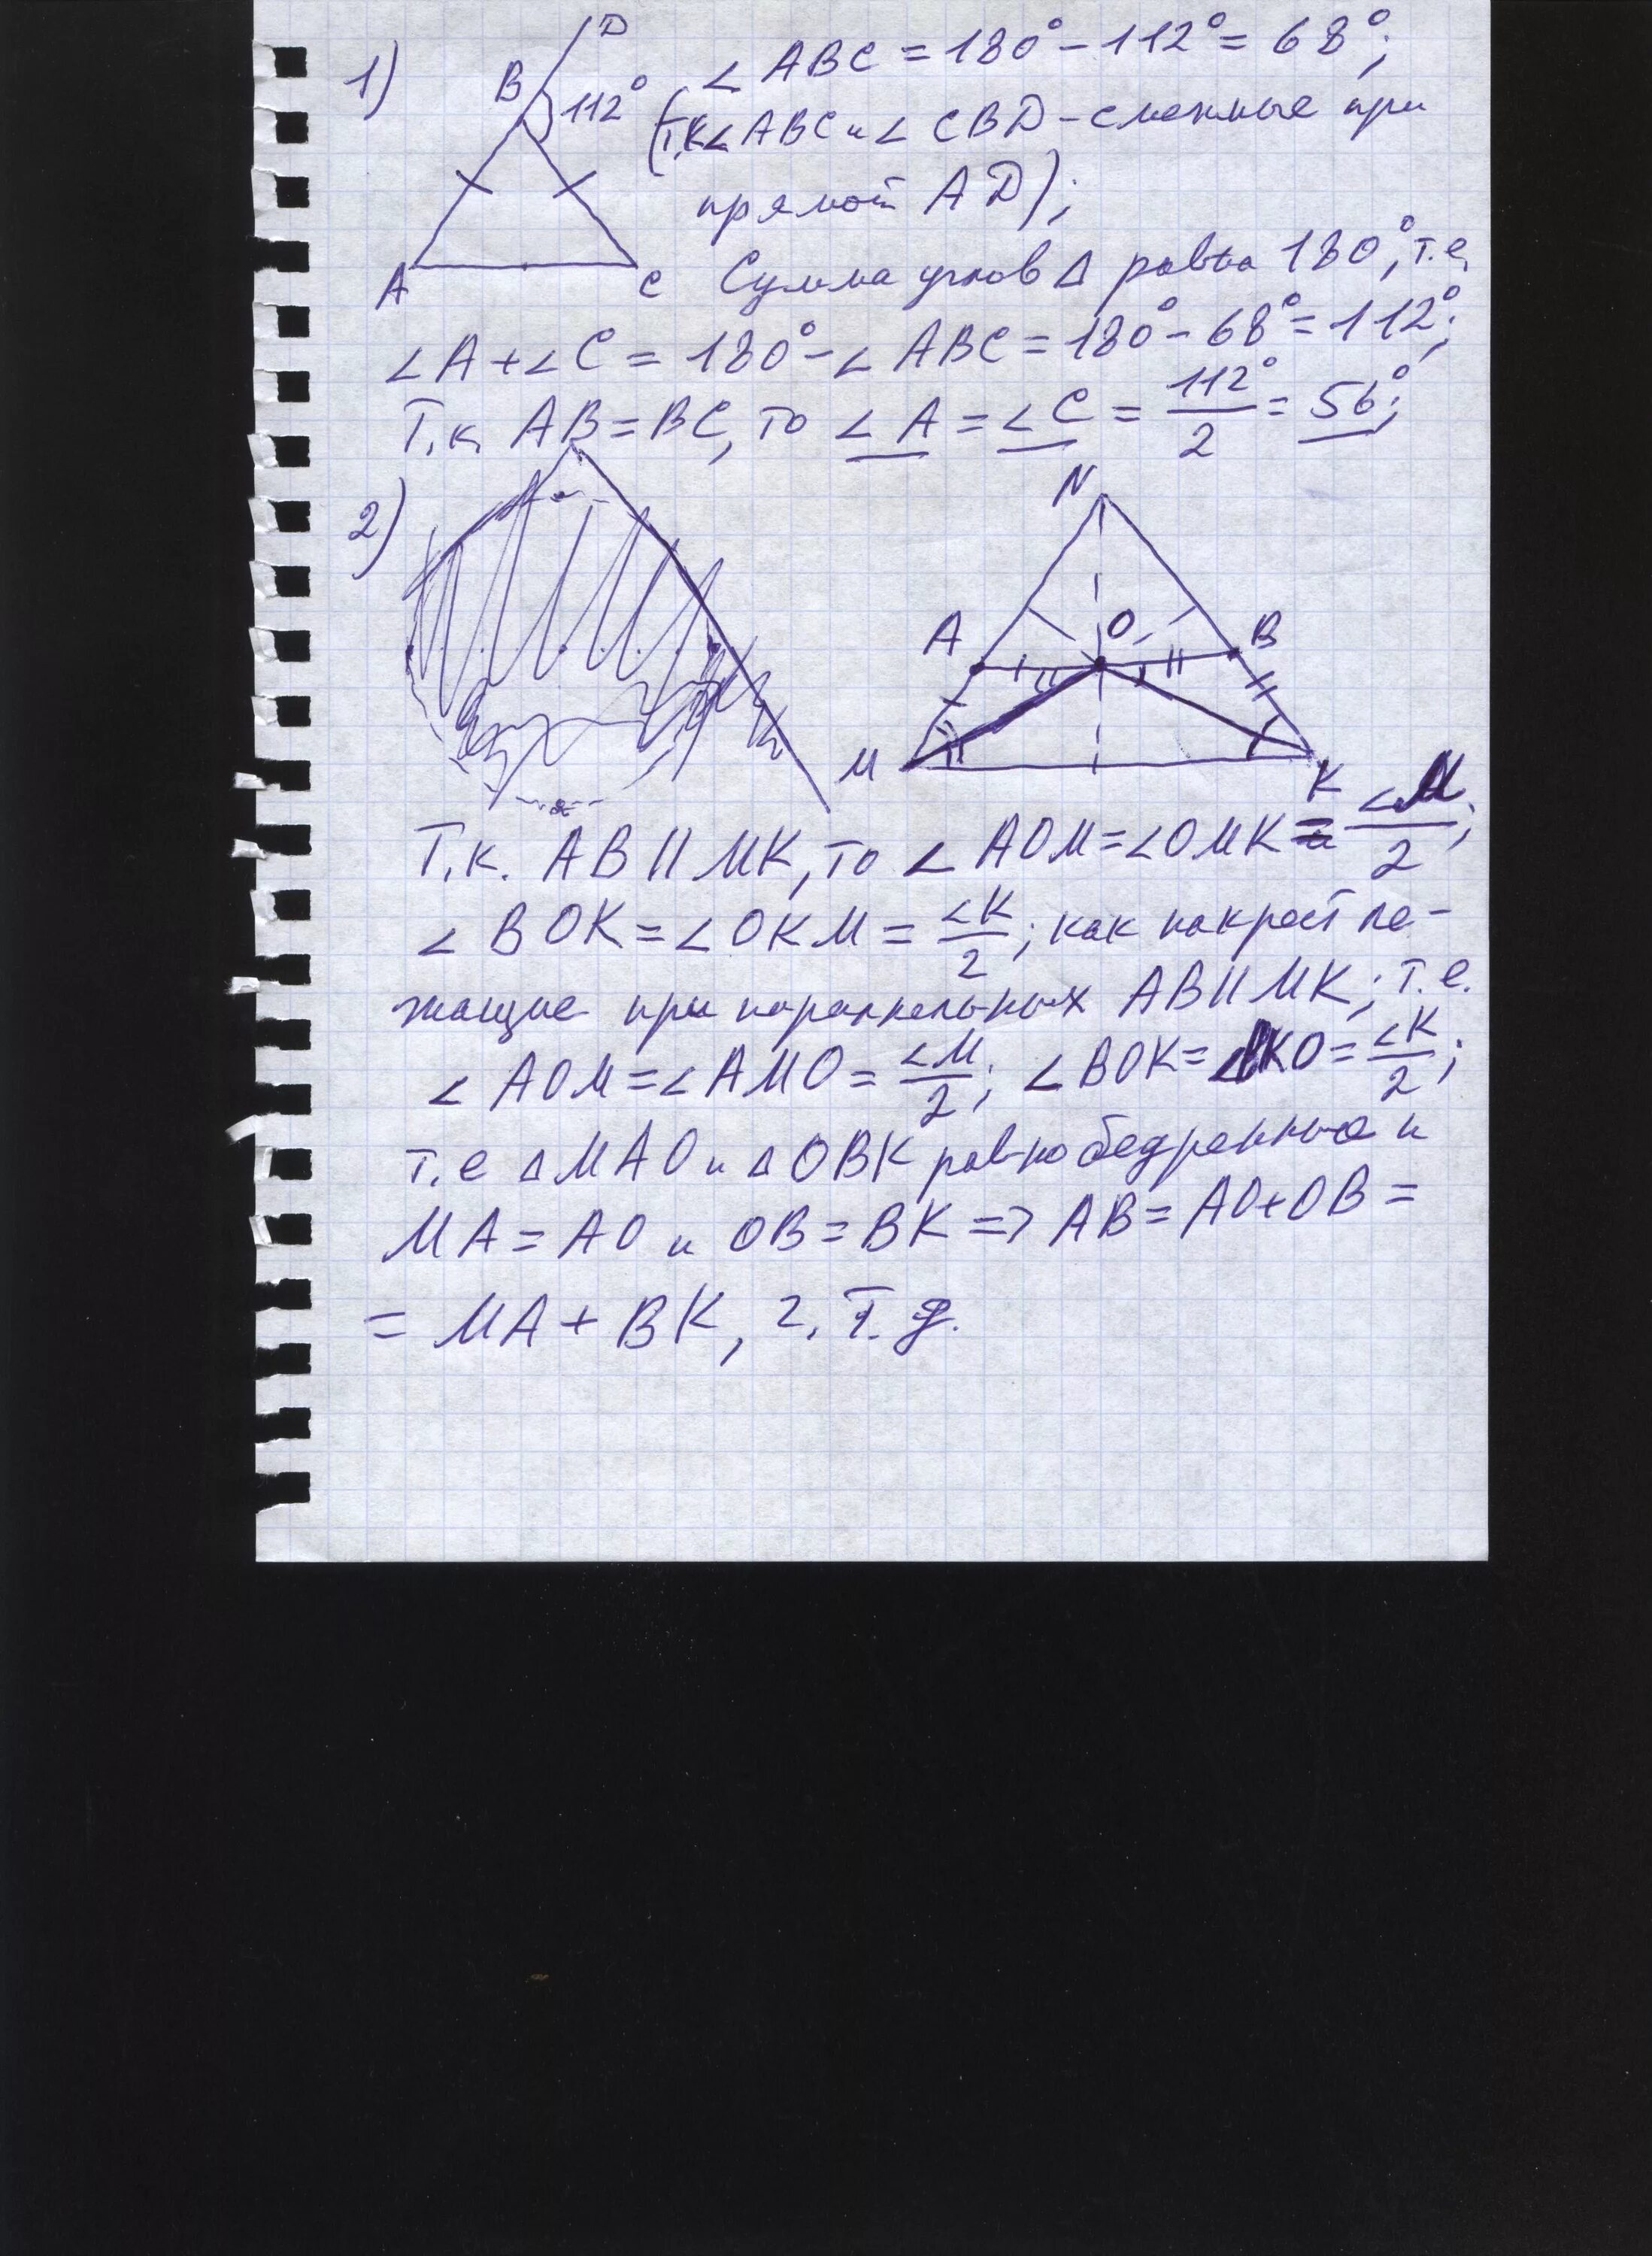 1)
D
B
112°
A
C
∠ABC = 180° - 112° = 68°;
(т.к ∠ABC и ∠CBD - смежные при
прямой AD);
Сумма углов Δ равна 180°, т.е.
∠A + ∠C = 180° - ∠ABC = 180° - 68° = 112°;
Т.к. AB = BC, то ∠A = ∠C = 112°/2 = 56°;
2)
N
A
O
B
M
K
Т.к. AB || MK, то ∠AOM = ∠OMK = ∠M/2;
∠BOK = ∠OKM = ∠K/2; как накрест ле-
жащие при параллельных AB || MK; т.е.
∠AOM = ∠AMO = ∠M/2; ∠BOK = ∠BKO = ∠K/2;
т.е ΔMAO и ΔOBK равнобедренные и
MA = AO и OB = BK => AB = AO + OB =
= MA + BK, ч.т.д.